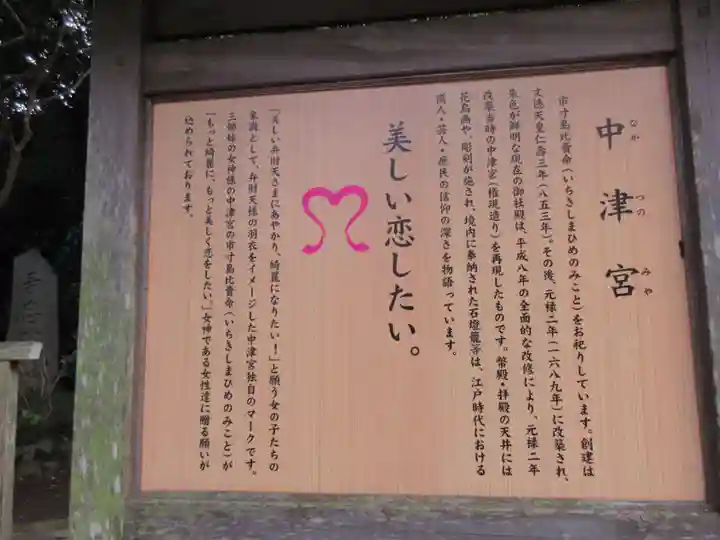 中津宮
なかつのみや
市寸島比賣命(いちきしまひめのみこと)をお祀りしています。創建は
文徳天皇仁壽三年(八五三年)。その後、元禄二年(一六八九年)に改築され、
朱色が鮮明な現在の御社殿は、平成八年の全面的な改修により、元禄二年
改築当時の中津宮(権現造り)を再現したものです。幣殿・拝殿の天井には
花鳥画や、彫刻が施され、境内に奉納された石燈籠等は、江戸時代における
商人・芸人・庶民の信仰の深さを物語っています。
美しい恋したい。
「美しい弁財天さまにあやかり、綺麗になりたい!」と願う女の子たちの
象徴として、弁財天様の羽衣をイメージした中津宮独自のマークです。
三姉妹の女神様の中津宮の市寸島比賣命(いちきしまひめのみこと)が
「もっと綺麗に、もっと美しく恋をしたい。」女神である女性達に贈る願いが
込められております。